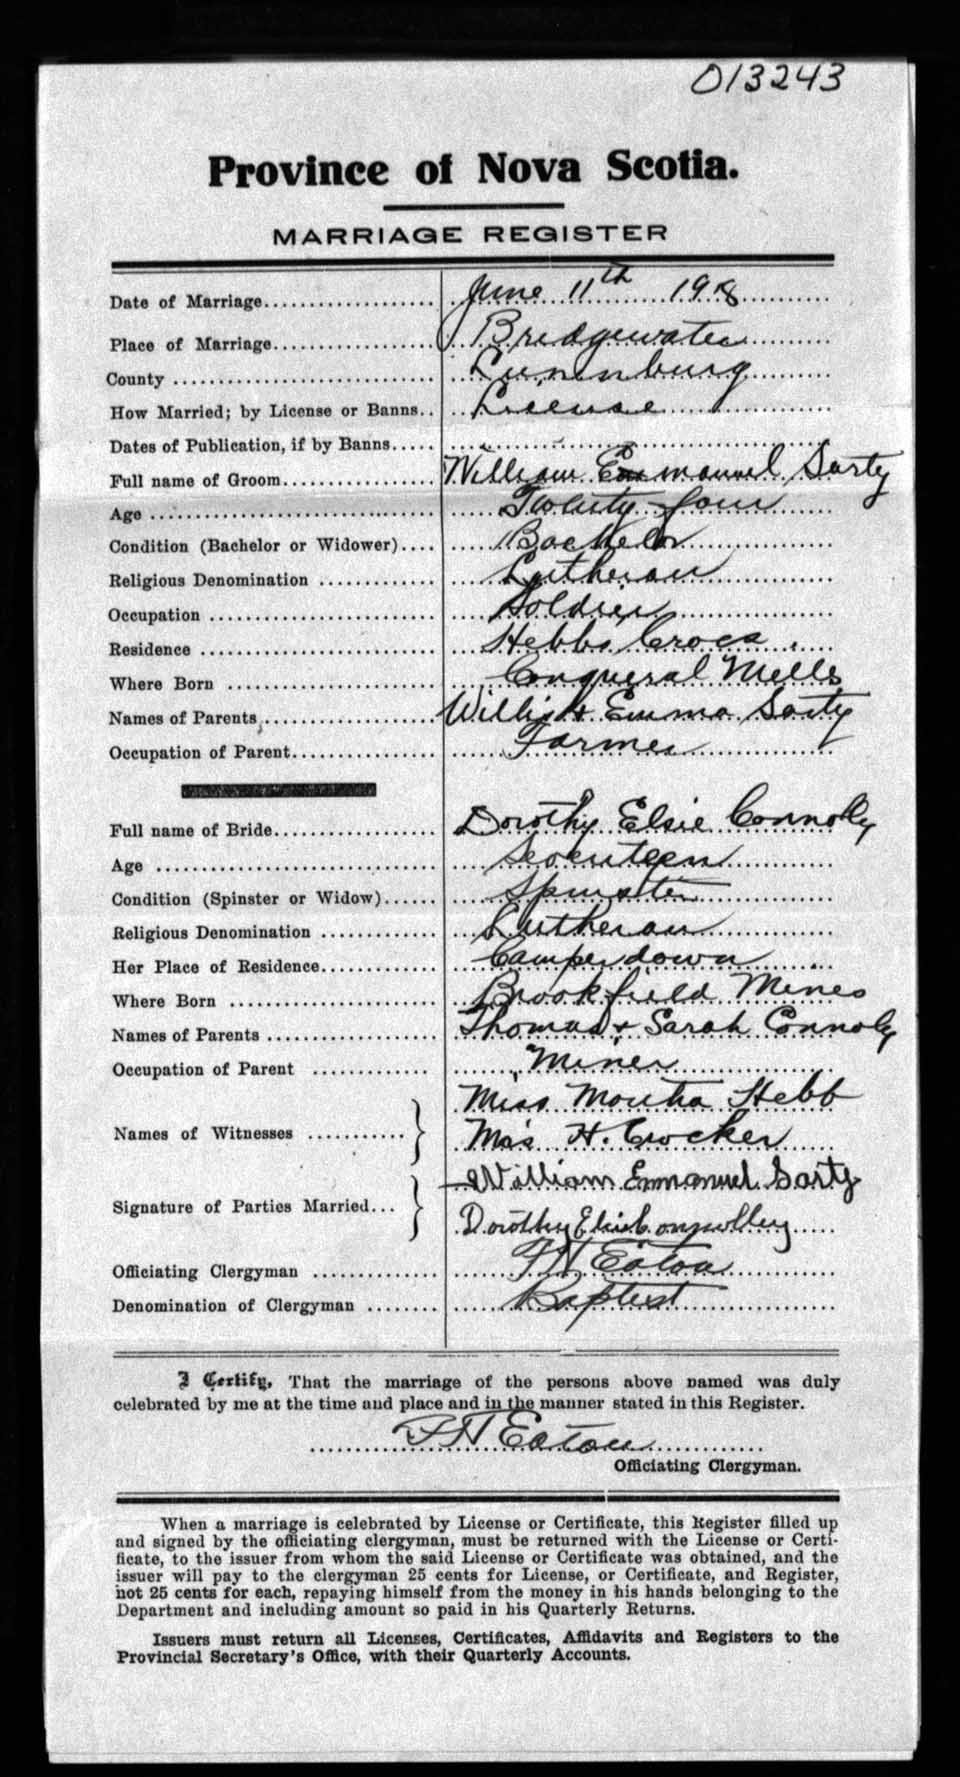 013243
Province of Nova Scotia.
MARRIAGE REGISTER
Date of Marriage.................... June 11th 1918
Place of Marriage................... Bridgewater
County .............................. Lunenburg
How Married; by License or Banns.. License
Dates of Publication, if by Banns.....
Full name of Groom.................. William Emmanuel Sarty
Age ................................. Twenty-four
Condition (Bachelor or Widower).... Bachelor
Religious Denomination ............. Lutheran
Occupation .......................... Soldier
Residence ........................... Hebbs Cross
Where Born ......................... Conqueral Mills
Names of Parents.................... Willis & Emma Sarty
Occupation of Parent................ Farmer
Full name of Bride................... Dorothy Elsie Connolly
Age ................................. Seventeen
Condition (Spinster or Widow)...... Spinster
Religious Denomination ............. Lutheran
Her Place of Residence.............. Camperdown
Where Born ......................... Brookfield Mines
Names of Parents .................... Thomas & Sarah Connoly
Occupation of Parent .............. Miner
Names of Witnesses ........... } Miss Hebb
H. Crocker
Signature of Parties Married... } William Emmanuel Sarty
Dorothy Elsie Connolley
Officiating Clergyman .............. Eaton
Denomination of Clergyman ........ Baptist
I Certify, That the marriage of the persons above named was duly
celebrated by me at the time and place and in the manner stated in this Register.
Eaton
Officiating Clergyman.
When a marriage is celebrated by License or Certificate, this Register filled up
and signed by the officiating clergyman, must be returned with the License or Certi-
ficate, to the issuer from whom the said License or Certificate was obtained, and the
issuer will pay to the clergyman 25 cents for License, or Certificate, and Register,
not 25 cents for each, repaying himself from the money in his hands belonging to the
Department and including amount so paid in his Quarterly Returns.
Issuers must return all Licenses, Certificates, Affidavits and Registers to the
Provincial Secretary's Office, with their Quarterly Accounts.